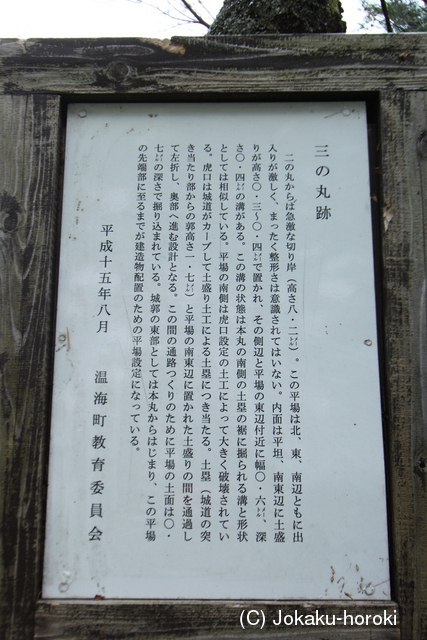 三の丸跡
二の丸からは急激な切り岸（高さ八・二㍍）。この平場は北、東、南辺ともに出
入りが激しく、まったく整形さは意識されてはいない。内面は平坦、南東辺に土盛
りが高さ〇・三～〇・四㍍で置かれ、その側辺と平場の東辺付近に幅〇・六㍍、深
さ〇・四㍍の溝がある。この溝の状態は本丸の南側の土塁の裾に掘られる溝と形状
としては相似している。平場の南側は虎口設定の土工によって大きく破壊されてい
る。虎口は城道がカーブして土盛り土工による土塁につき当たる。土塁（城道の突
き当たり部からの郭高さ一・七㍍）と平場の南東辺に置かれた土盛りの間を通過し
て左折し、奥部へ進む設計となる。この間の通路つくりのために平場の土面は〇・
七㍍の深さで掘り込まれている。城郭の東部としては本丸からはじまり、この平場
の先端部に至るまでが建造物配置のための平場設定になっている。
平成十五年八月　温海町教育委員会
(C) Jokaku-horoki